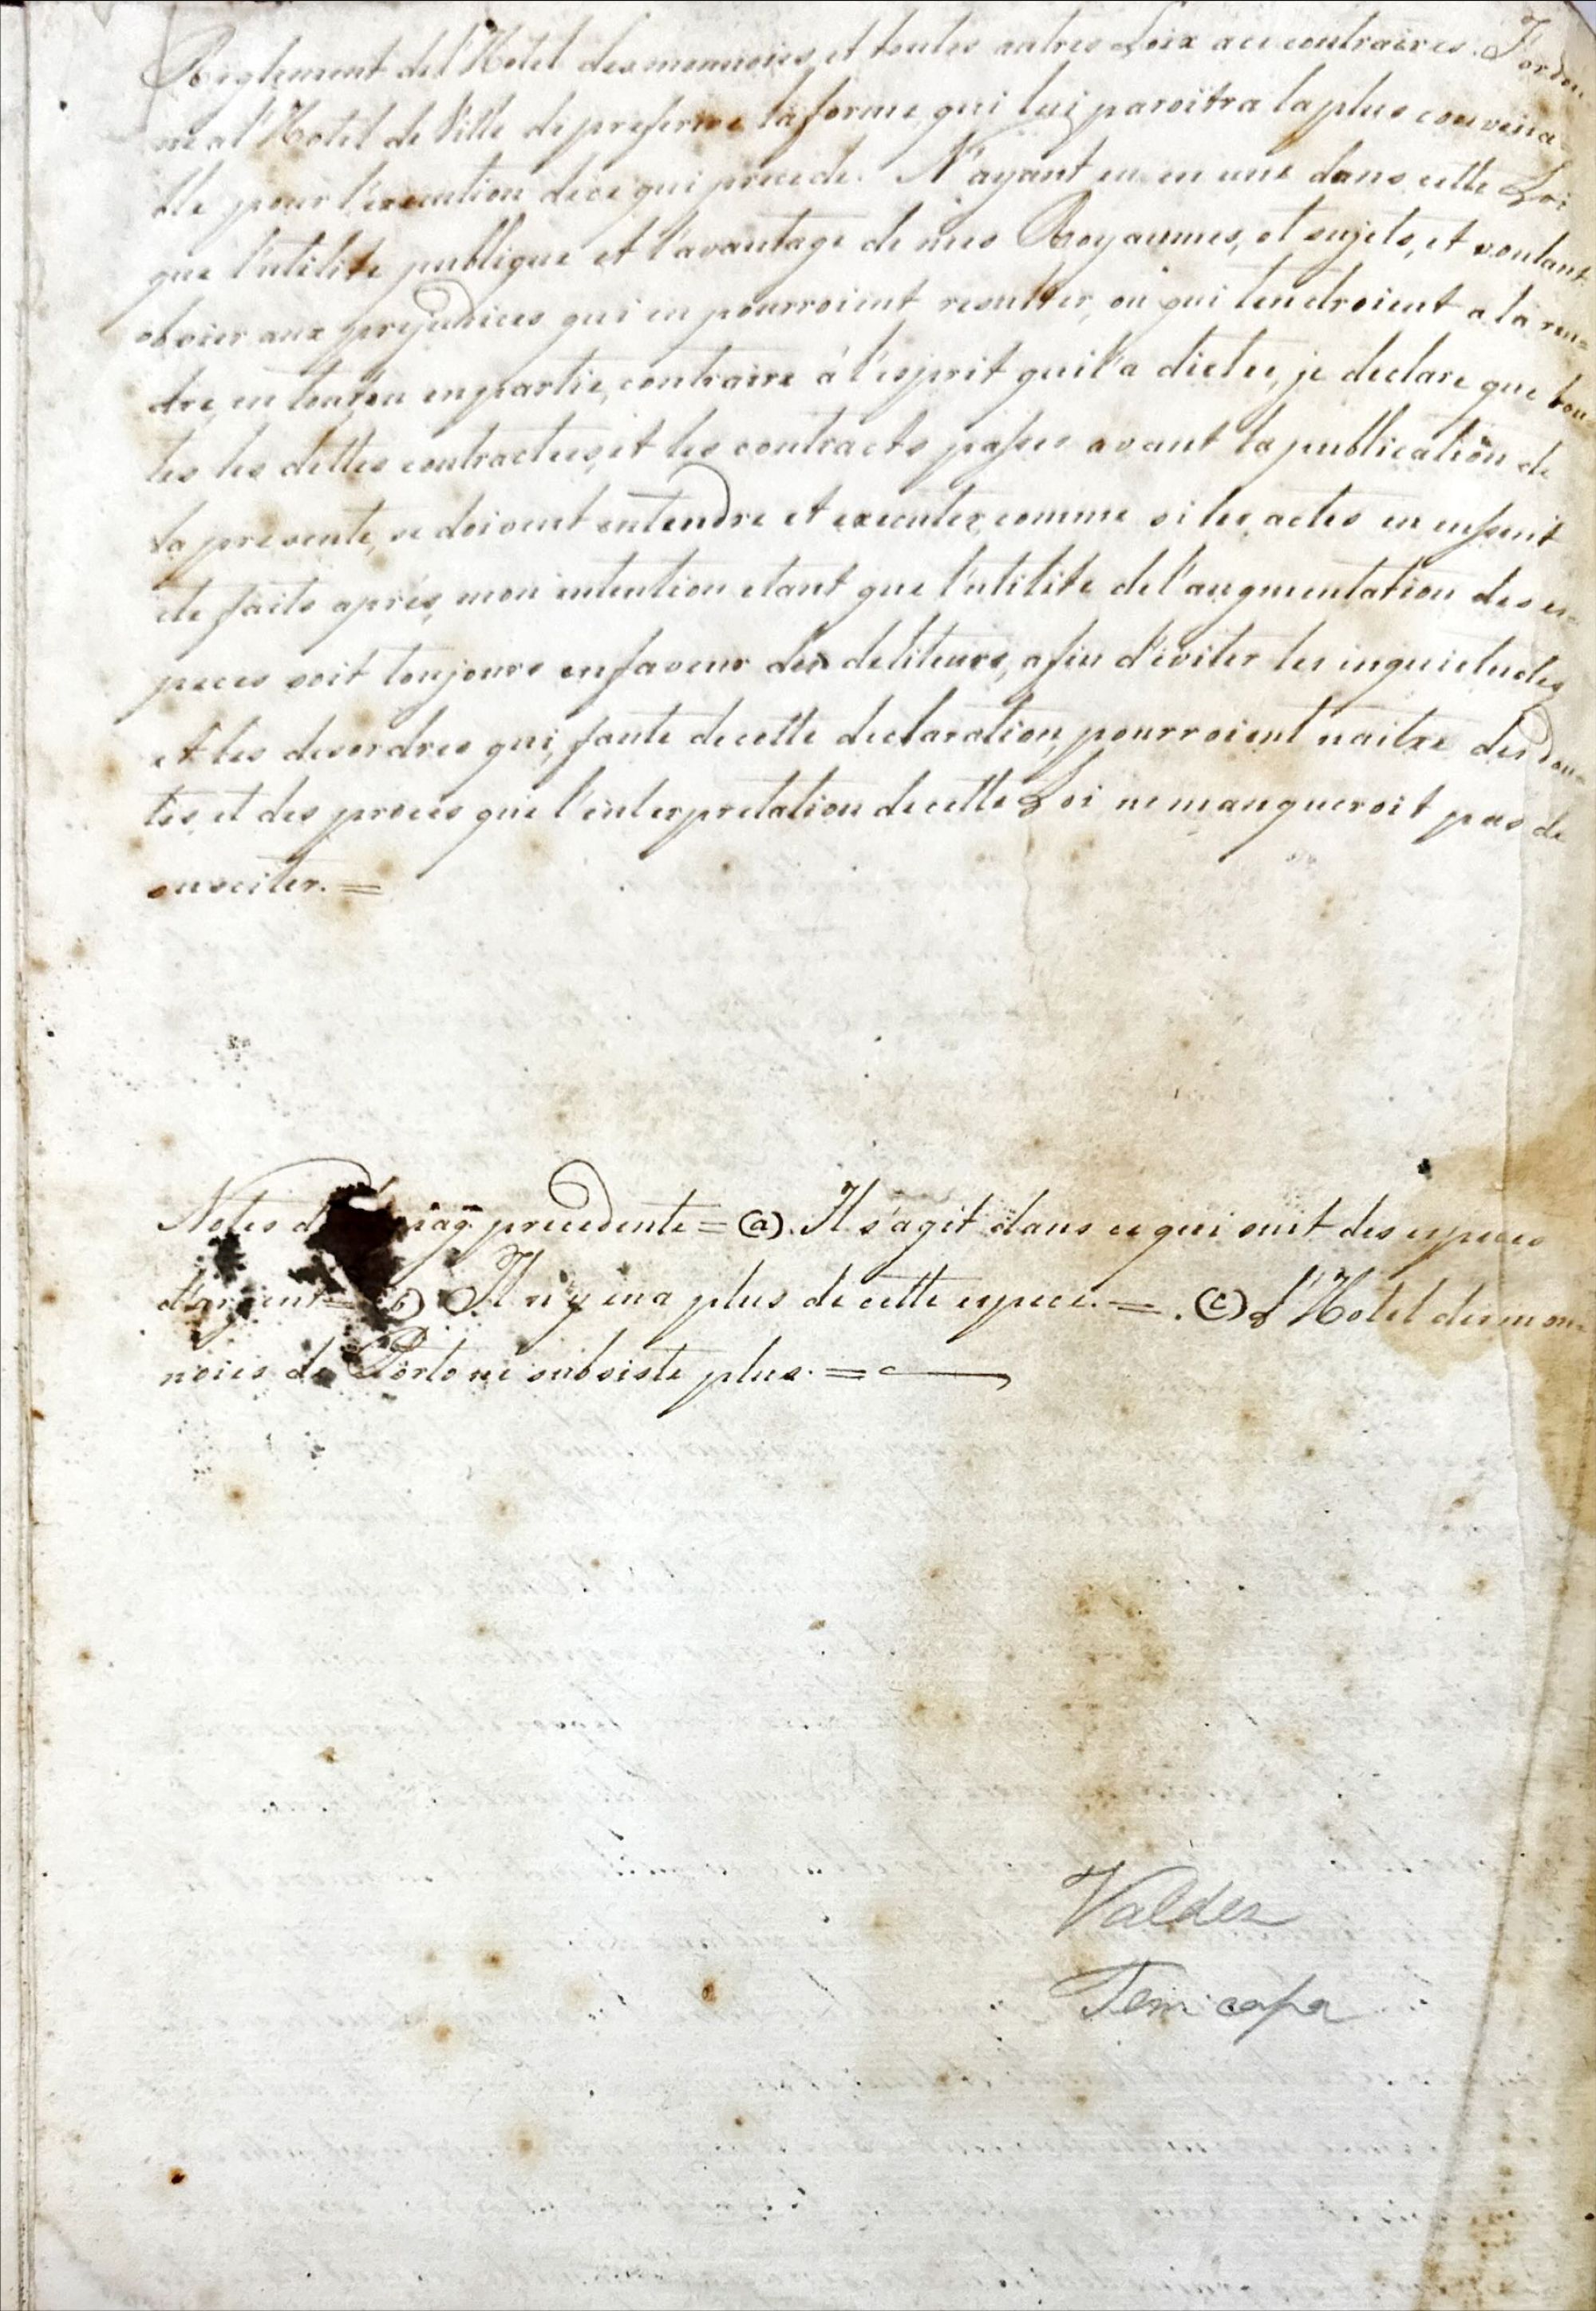 Reglement del'Hotel des monnoies, et toutes autres Loix a ce contraires. J'ordon
ne al'Hotel de Ville de preferire la forme qui lui paroitra la plus convena=
ble pour l'execution de ce qui precede. N'ayant eu en vue dans cette Loi
que l'utilite publique et l'avantage de mes Royaumes, et sujets, et voulant
obvier aux prejudices qui en pourroient resulter, ou qui tendroient a la ren=
dre, en tout, ou en partie, contraire á l'esprit qui l'a dictee, je declare que tou=
tes les dettes contractees, et les contracts passes avant la publication de
la presente, se doivent entendre et executer, comme si les actes en eussent
ete faits aprés, mon intention etant que l'utilite de l'augmentation des es=
peces soit toujours en faveur des debiteurs, afin d'eviter les inquietudes
et les desordres qui, faute de cette declaration, pourroient naitre des dou=
tes, et des proces que l'interpretation de cette Loi ne manqueroit pas de
susciter. =
Notes d pag. precedente = (a). Il s'agit dans ce qui suit des especes
d'argent = b) Il n'y en a plus de cette espece. = . (c) L'Hotel des mon=
noies de Porto ne subsiste plus. =
Valdez
Tem capa